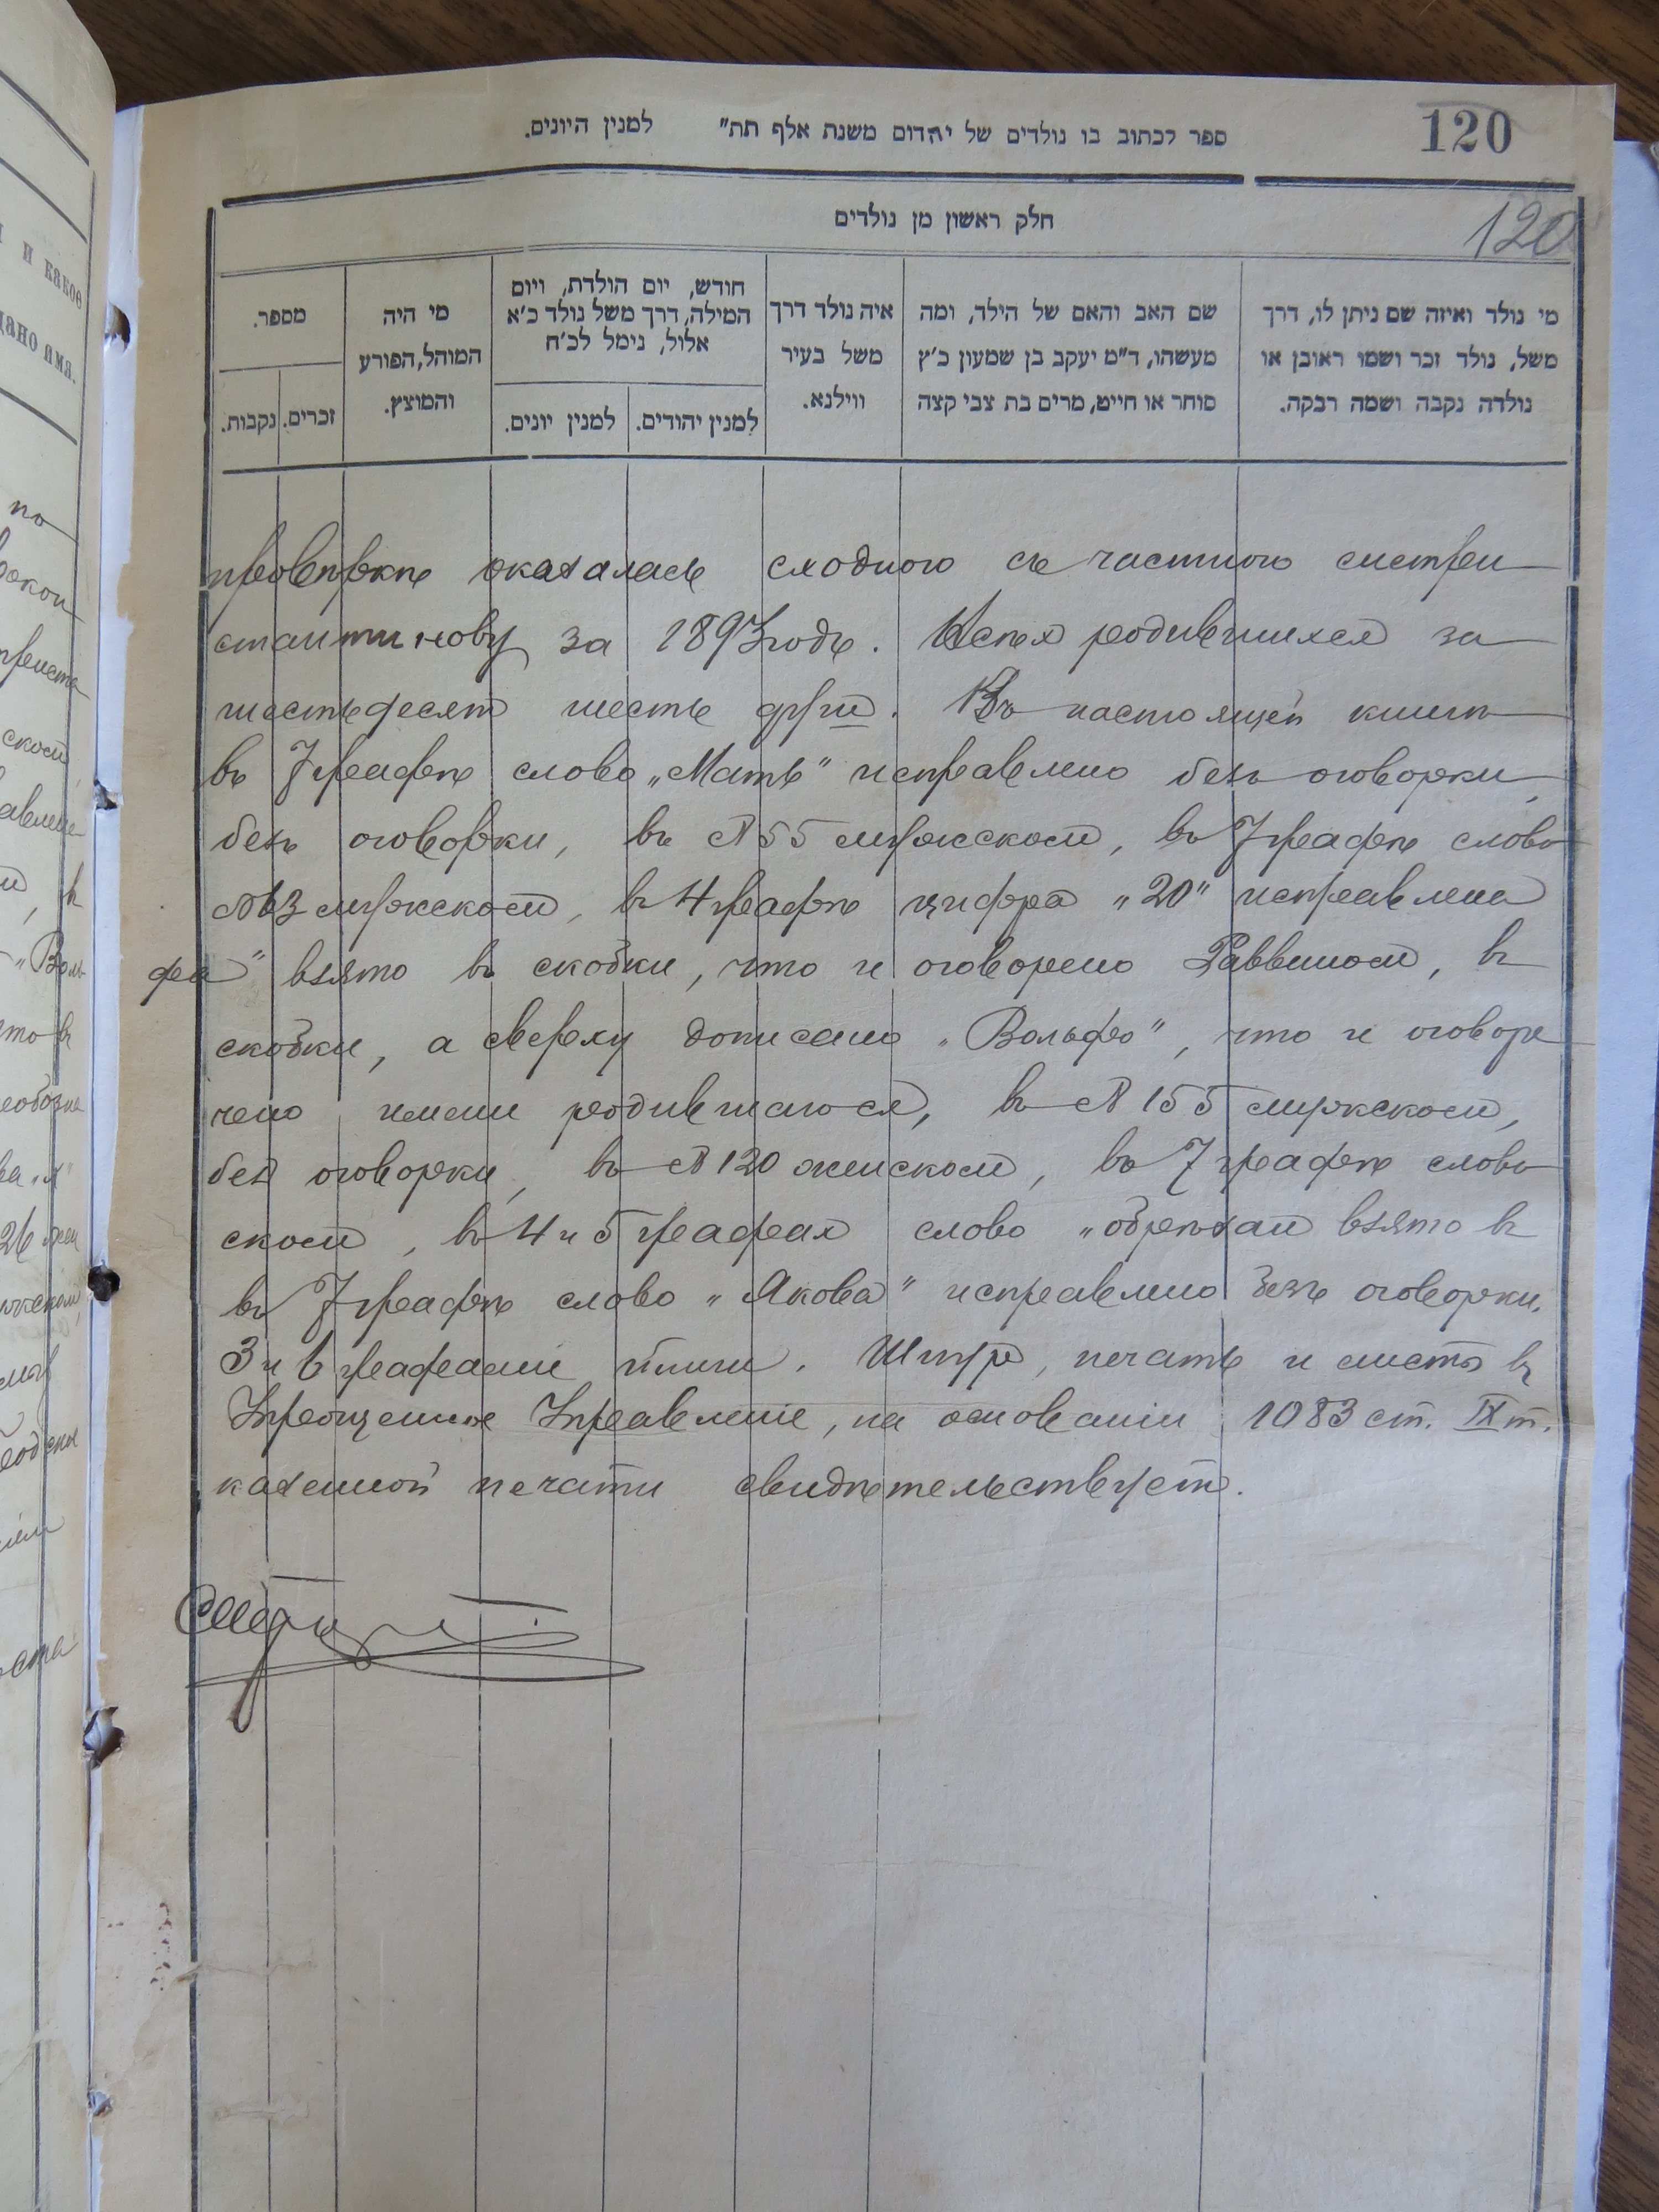 120
ספר לכתוב בו נולדים של יהדום משנת אלף תת״ למנין היונים.
120
חלק ראשון מן נולדים
מי נולד ואיזה שם ניתן לו, דרך
משל, נולד זכר ושמו ראובן או
נולדה נקבה ושמה רבקה.
שם האב והאם של הילד, ומה
מעשהו, ד״מ יעקב בן שמעון כ׳ץ
סוחר או חייט, מרים בת צבי קצה
איה נולד דרך
משל בעיר
ווילנא.
חודש, יום הולדת, ויום
המילה, דרך משל נולד כ׳א
אלול, נימל לכ׳ח
למנין יהודים.
למנין יונים.
מי היה
המוהל, הפורע
והמוצץ.
מספר.
זכרים.
נקבות.
провѣркѣ оказалась сходною съ частною
за 1893 годъ. Всѣх родившихся за
шестьдесят шесть душ. Въ настоящей книгѣ
въ 7 графѣ слово „Мать" исправлено безъ оговорки,
безъ оговорки, въ № 55 мужском, въ 7 графѣ слово
мужском, въ 4 графѣ цифра „20" исправлена
фа" взято въ скобки, что и оговорено Раввином, въ
скобки, а сверху дописано „Вольфъ", что и оговоре
чено имени родившагося, въ № 155 мужском,
без оговорки, въ № 120 женском, въ 7 графѣ слово
ском, въ 4 и 5 графах слово „обрѣзан взято въ
въ 7 графѣ слово „Якова" исправлено безъ оговорки.
Шнур, печать и листы въ
Управление, на основании 1083 ст. IX т.
казенной печати свидѣтельствует.